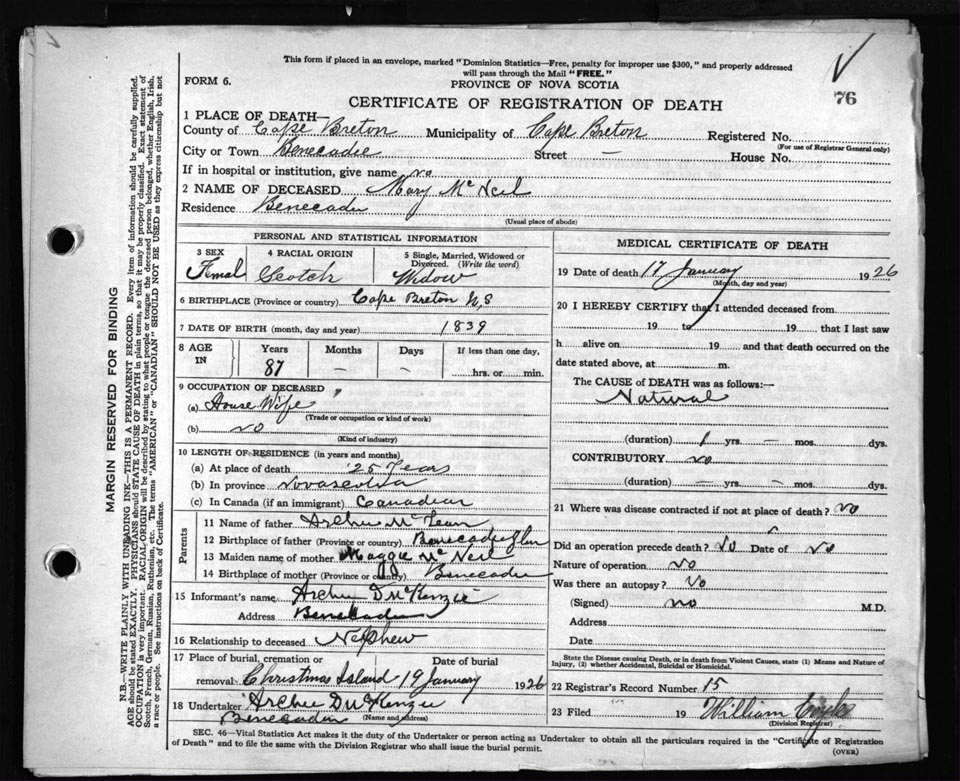 This form if placed in an envelope, marked "Dominion Statistics—Free, penalty for improper use $300," and properly addressed
will pass through the Mail "FREE."
FORM 6.
PROVINCE OF NOVA SCOTIA
76
CERTIFICATE OF REGISTRATION OF DEATH
1 PLACE OF DEATH—
County of Cape Breton Municipality of Cape Breton Registered No.
(For use of Registrar General only)
City or Town Benecadie Street — House No.
If in hospital or institution, give name no
2 NAME OF DECEASED Mary McNeil
Residence Benecadie
(Usual place of abode)
PERSONAL AND STATISTICAL INFORMATION
3 SEX 4 RACIAL ORIGIN 5 Single, Married, Widowed or
Divorced. (Write the word)
Femal Scotch Widow
6 BIRTHPLACE (Province or country) Cape Breton N.S
7 DATE OF BIRTH (month, day and year) 1839
8 AGE IN Years Months Days If less than one day,
87 — — hrs. or min.
9 OCCUPATION OF DECEASED
(a) House Wife
(Trade or occupation or kind of work)
(b) no
(Kind of industry)
10 LENGTH OF RESIDENCE (in years and months)
(a) At place of death 25 Years
(b) In province Novascotia
(c) In Canada (if an immigrant) Canadian
Parents
11 Name of father Archie McLean
12 Birthplace of father (Province or country)
13 Maiden name of mother Maggie McNeil
14 Birthplace of mother (Province or country) Benecadie
15 Informant's name Archie D McKenzie
Address Benecadie
16 Relationship to deceased Nephew
17 Place of burial, cremation or Date of burial
removal Christmas Island 19 January 1926
18 Undertaker Archie D McKenzie
Benecadie (Name and address)
MEDICAL CERTIFICATE OF DEATH
19 Date of death 17 January 1926
(Month, day and year)
20 I HEREBY CERTIFY that I attended deceased from
19 to 19 that I last saw
h alive on 19 and that death occurred on the
date stated above, at m.
The CAUSE of DEATH was as follows:—
Natural
(duration) 1 yrs. — mos. dys.
CONTRIBUTORY no
(duration) — yrs. — mos. dys.
21 Where was disease contracted if not at place of death? no
Did an operation precede death? No Date of No
Nature of operation no
Was there an autopsy? No
(Signed) no M.D.
Address
Date
State the Disease causing Death, or in death from Violent Causes, state (1) Means and Nature of
Injury, (2) whether Accidental, Suicidal or Homicidal.
22 Registrar's Record Number 15
23 Filed 19 William
(Division Registrar)
SEC. 46—Vital Statistics Act makes it the duty of the Undertaker or person acting as Undertaker to obtain all the particulars required in the "Certificate of Registration
of Death" and to file the same with the Division Registrar who shall issue the burial permit.
(OVER)
MARGIN RESERVED FOR BINDING
N.B.—WRITE PLAINLY WITH UNFADING INK—THIS IS A PERMANENT RECORD. Every item of information should be carefully supplied.
AGE should be stated EXACTLY. PHYSICIANS should STATE CAUSE OF DEATH in plain terms, so that it may be properly classified. Exact statement of
OCCUPATION is very important. RACIAL ORIGIN will be described by stating to what people or tongue the deceased person belonged, whether English, Irish,
Scotch, French, German, Russian, Ruthenian, etc. The terms "AMERICAN" or "CANADIAN" SHOULD NOT BE USED as they express citizenship but not
a race or people. See instructions on back of Certificate.